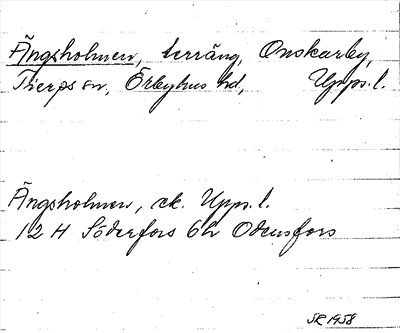 Ängsholmen, terräng, Onskarby,
Tierps sn, Örbyhus hd, Upps. l.
Ängsholmen, ek. Upps. l.
12 H Söderfors 6h Odensfors
SR 1958